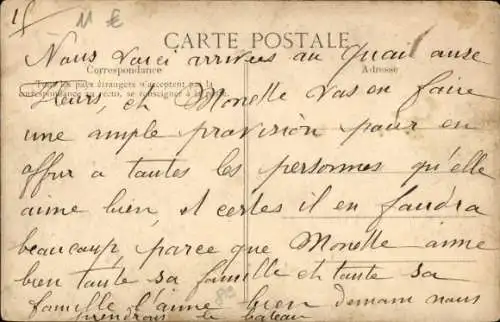 15 11 €
CARTE POSTALE
Nous voici arrivés au Quai aux
Correspondance Adresse
Tous les pays étrangers n'acceptent pas la
correspondance au recto, se renseigner à la poste.
fleurs, et Monelle vas en faire
une ample provision pour en
offrir a toutes les personnes qu'elle
aime bien, et certes il en faudra
beaucoup, parce que Monelle aime
bien toute sa famille et toute sa
famille l'aime bien demain nous
prendrons le bateau